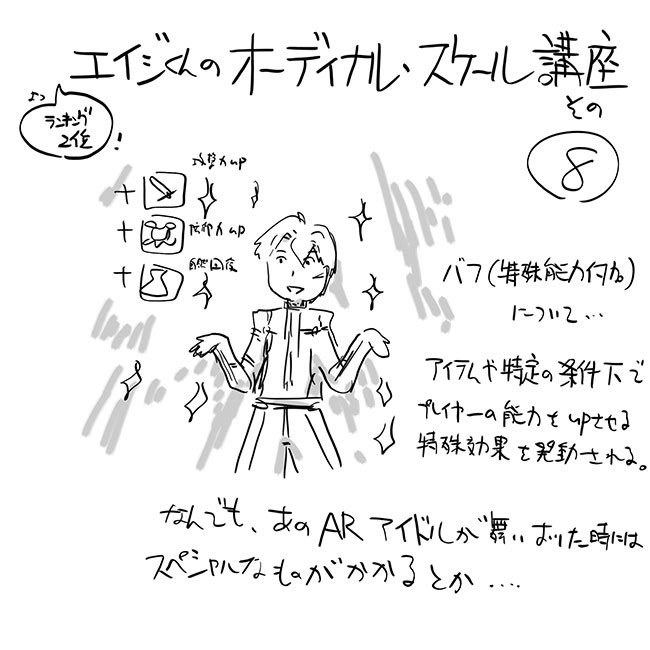 エイジくんのオーディナル・スケール講座
その
8
よっ
ランキング
2位
!
+ 攻撃力up
+ 防御力up
+ 自然回復
バフ(特殊能力付加)
について…
アイテムや特定の条件下で
プレイヤーの能力をupさせる
特殊効果を発動される。
なんでも、あのARアイドルが舞いおりた時には
スペシャルなものがかかるとか....